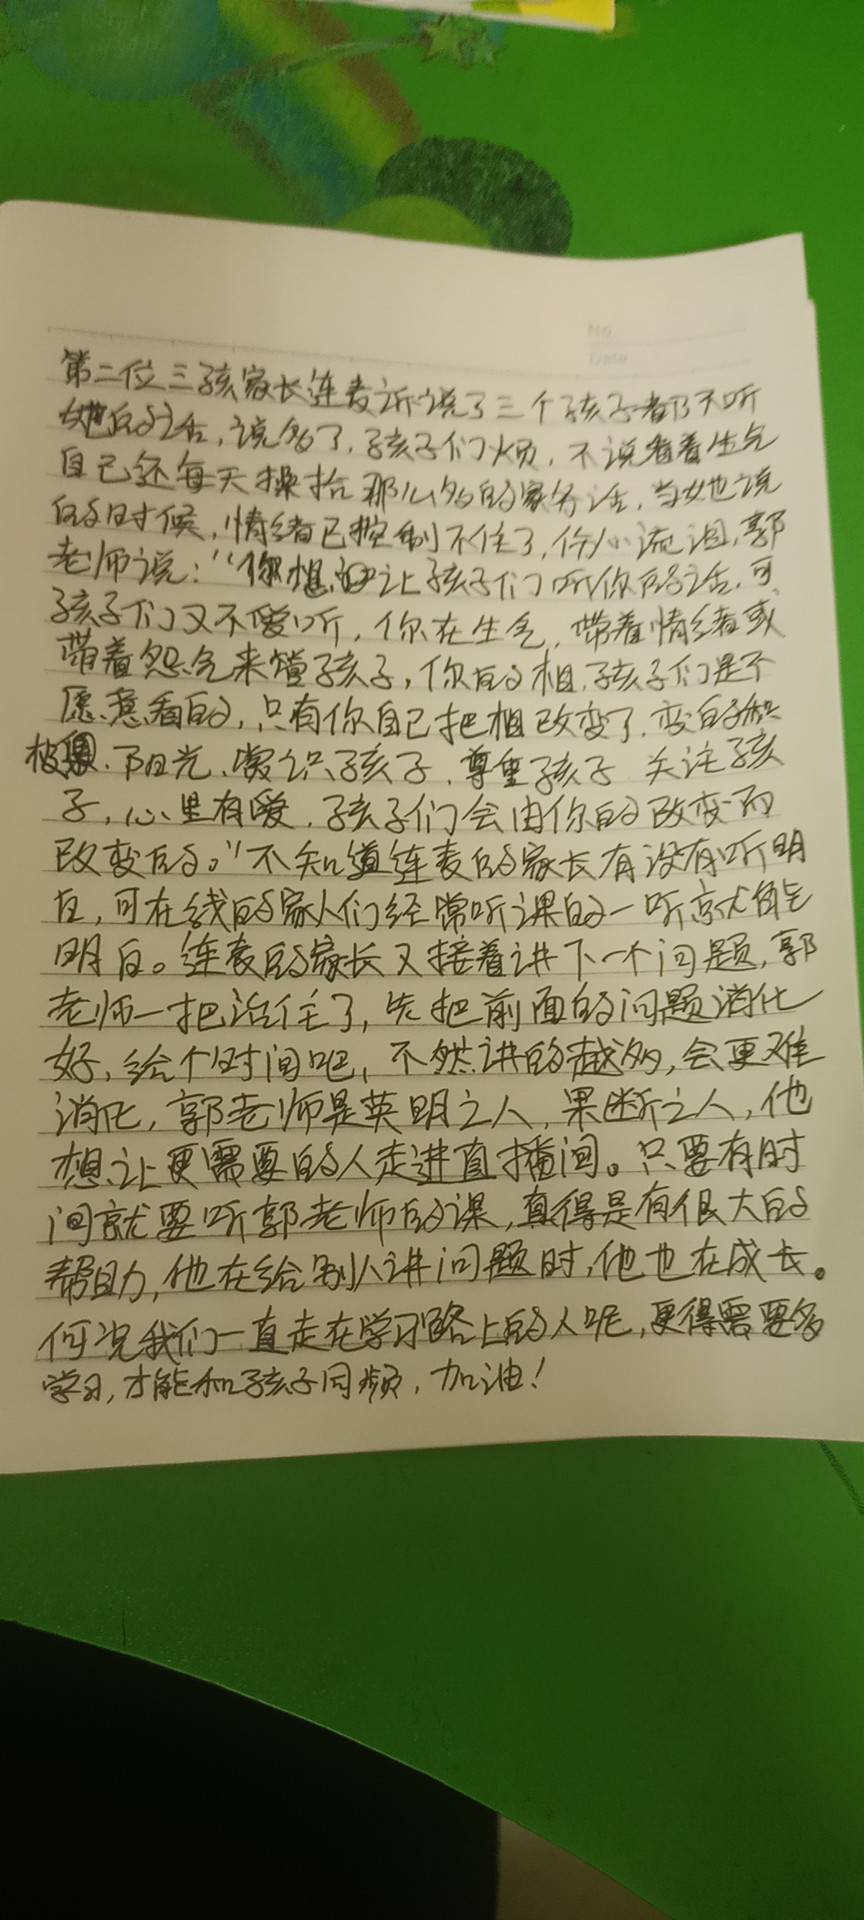 No
Date
第二位三孩家长连麦诉说了三个孩子都不听
她的话，说多了，孩子们烦，不说看着生气
自己还每天操拾那么多的家务活，当她说
的时候，情绪已控制不住了，伤心流泪，郭
老师说：“你想让孩子们听你的话，可
孩子们又不爱听，你在生气，带着情绪或
带着怨气来管孩子，你的相，孩子们是不
愿意看的，只有你自己把相改变了，变的积
极、阳光、赏识孩子，尊重孩子 关注孩
子，心里有爱，孩子们会由你的改变而
改变的。”不知道连麦的家长有没有听明
白，可在线的家人们经常听课的一听就能
明白。连麦的家长又接着讲下一个问题，郭
老师一把话住了，先把前面的问题消化
好，给个时间吧，不然讲的越多，会更难
消化，郭老师是英明之人，果断之人，他
想让更需要的人走进直播间。只要有时
间就要听郭老师的课，真得是有很大的
帮助，他在给别人讲问题时，他也在成长。
何况我们一直走在学习路上的人呢，更得需要多
学习，才能和孩子同频，加油！